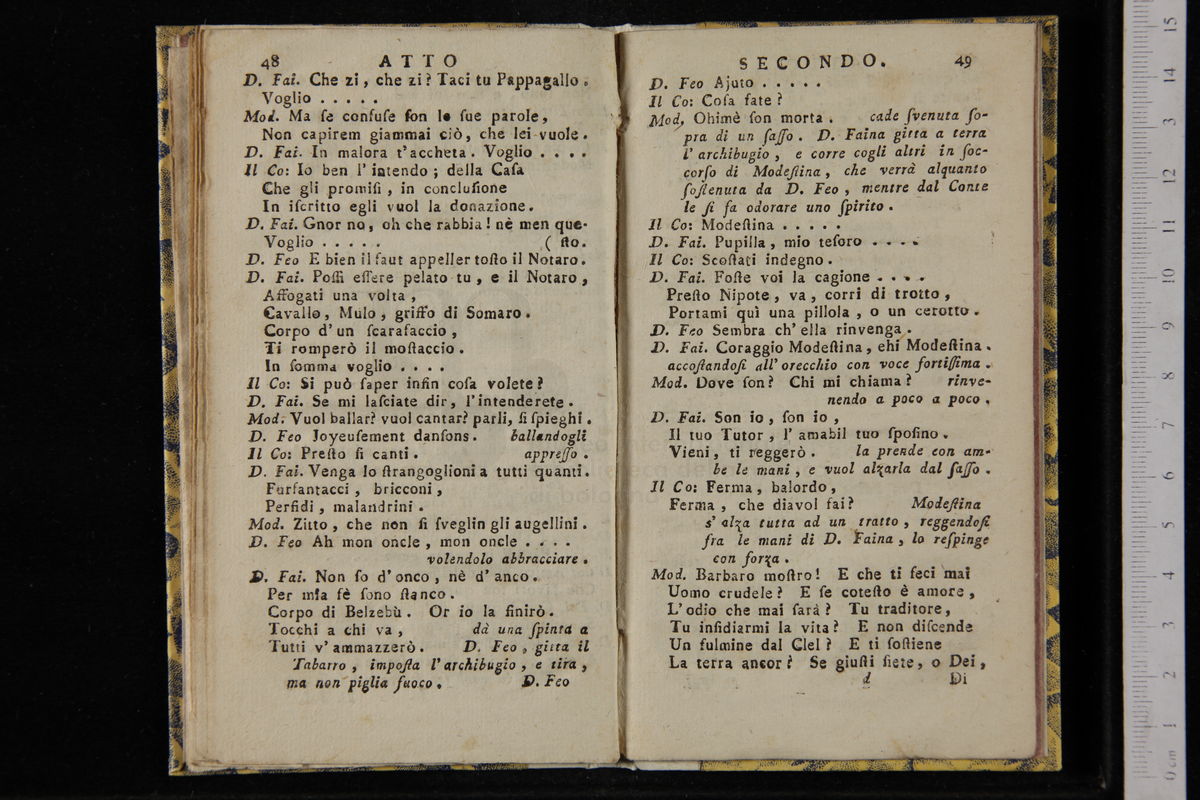 48 ATTO
D. Fai. Che zi, che zi? Taci tu Pappagallo.
Voglio . . . . .
Mod. Ma ſe confuſe ſon le ſue parole,
Non capirem giammai ciò, che lei vuole.
D. Fai. In malora t'accheta. Voglio . . . .
Il Co: Io ben l'intendo; della Caſa
Che gli promiſi, in concluſione
In iſcritto egli vuol la donazione.
D. Fai. Gnor no, oh che rabbia! nè men que-
Voglio . . . . . ( ſto.
D. Feo E bien il faut appeller toſto il Notaro.
D. Fai. Poſſi eſſere pelato tu, e il Notaro,
Affogati una volta,
Cavallo, Mulo, griffo di Somaro.
Corpo d'un ſcarafaccio,
Ti romperò il moſtaccio.
In ſomma voglio . . . .
Il Co: Si può ſaper infin coſa volete?
D. Fai. Se mi laſciate dir, l'intenderete.
Mod. Vuol ballar? vuol cantar? parli, ſi ſpieghi.
D. Feo Joyeuſement danſons. ballandogli
Il Co: Preſto ſi canti. appreſſo.
D. Fai. Venga lo ſtrangoglioni a tutti quanti.
Furfantacci, bricconi,
Perfidi, malandrini.
Mod. Zitto, che non ſi ſveglin gli augellini.
D. Feo Ah mon oncle, mon oncle . . . .
volendolo abbracciare.
D. Fai. Non ſo d'onco, nè d'anco.
Per mia fè ſono ſtanco.
Corpo di Belzebù. Or io la finirò.
Tocchi a chi va, dà una ſpinta a
Tutti v'ammazzerò. D. Feo, gitta il
Tabarro, impoſta l'archibugio, e tira,
ma non piglia fuoco. D. Feo
SECONDO. 49
D. Feo Ajuto . . . . .
Il Co: Coſa fate?
Mod. Ohimè ſon morta. cade ſvenuta ſo-
pra di un ſaſſo. D. Faina gitta a terra
l'archibugio, e corre cogli altri in ſoc-
corſo di Modeſtina, che verrà alquanto
ſoſtenuta da D. Feo, mentre dal Conte
le ſi fa odorare uno ſpirito.
Il Co: Modeſtina . . . . .
D. Fai. Pupilla, mio teſoro . . . .
Il Co: Scoſtati indegno.
D. Fai. Foſte voi la cagione . . . .
Preſto Nipote, va, corri di trotto,
Portami quì una pillola, o un cerotto.
D. Feo Sembra ch'ella rinvenga.
D. Fai. Coraggio Modeſtina, ehi Modeſtina.
accoſtandoſi all'orecchio con voce fortiſſima.
Mod. Dove ſon? Chi mi chiama? rinve-
nendo a poco a poco.
D. Fai. Son io, ſon io,
Il tuo Tutor, l'amabil tuo ſpoſino.
Vieni, ti reggerò. la prende con am-
be le mani, e vuol alzarla dal ſaſſo.
Il Co: Ferma, balordo,
Ferma, che diavol fai? Modeſtina
s'alza tutta ad un tratto, reggendoſi
fra le mani di D. Faina, lo reſpinge
con forza.
Mod. Barbaro moſtro! E che ti feci mai
Uomo crudele? E ſe coteſto è amore,
L'odio che mai ſarà? Tu traditore,
Tu inſidiarmi la vita? E non diſcende
Un fulmine dal Ciel? E ti ſoſtiene
La terra ancor? Se giuſti ſiete, o Dei,
d Di
0 cm 1 2 3 4 5 6 7 8 9 10 11 12 3 14 15